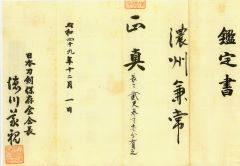 鑑定書
濃州兼常
正真
長さ貳尺
昭和四十九年十二月一日
日本刀剣保存会会長
徳川義親